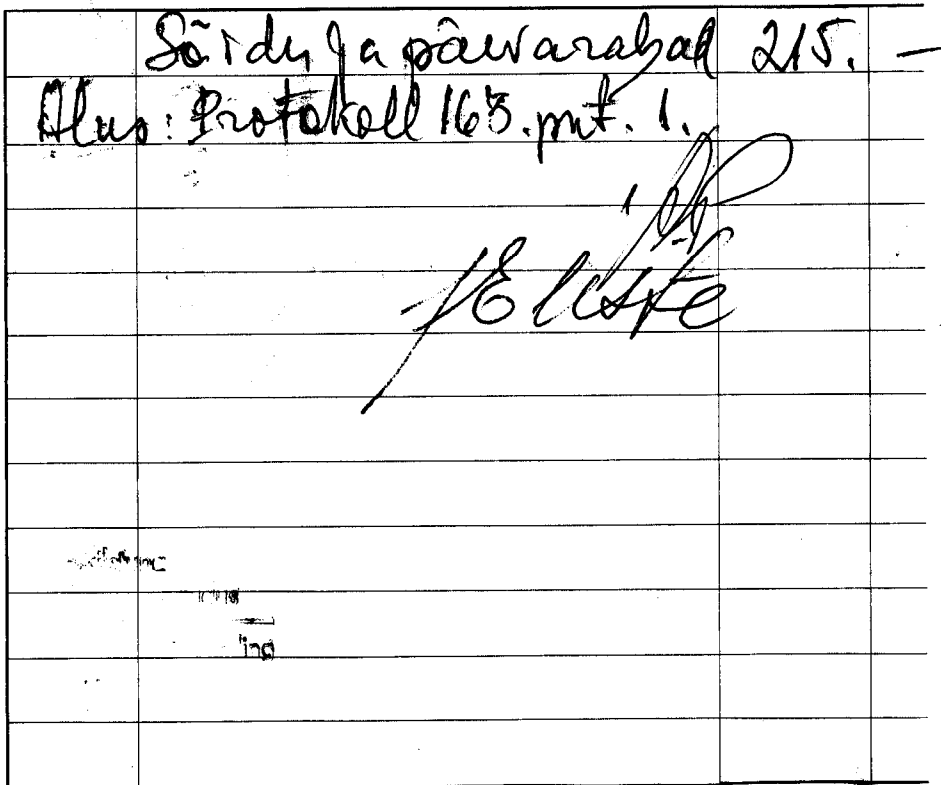 Sõidu ja päevarahad 215. —
Alus: Protokoll 163. pnt. 1.